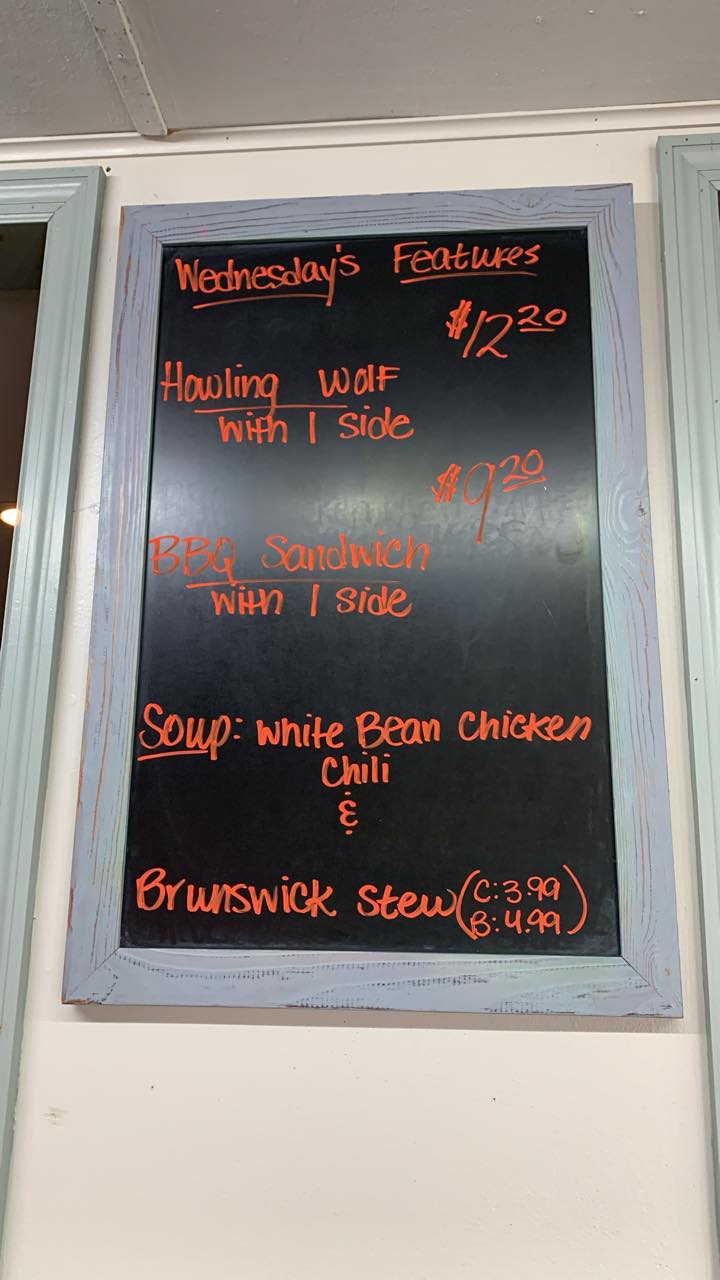 Wednesday's Features
$12.20
Howling Wolf
with 1 side
$9.20
BBQ Sandwich
with 1 side
Soup: White Bean Chicken
Chili
&
Brunswick Stew (C: 3.99
B: 4.99)